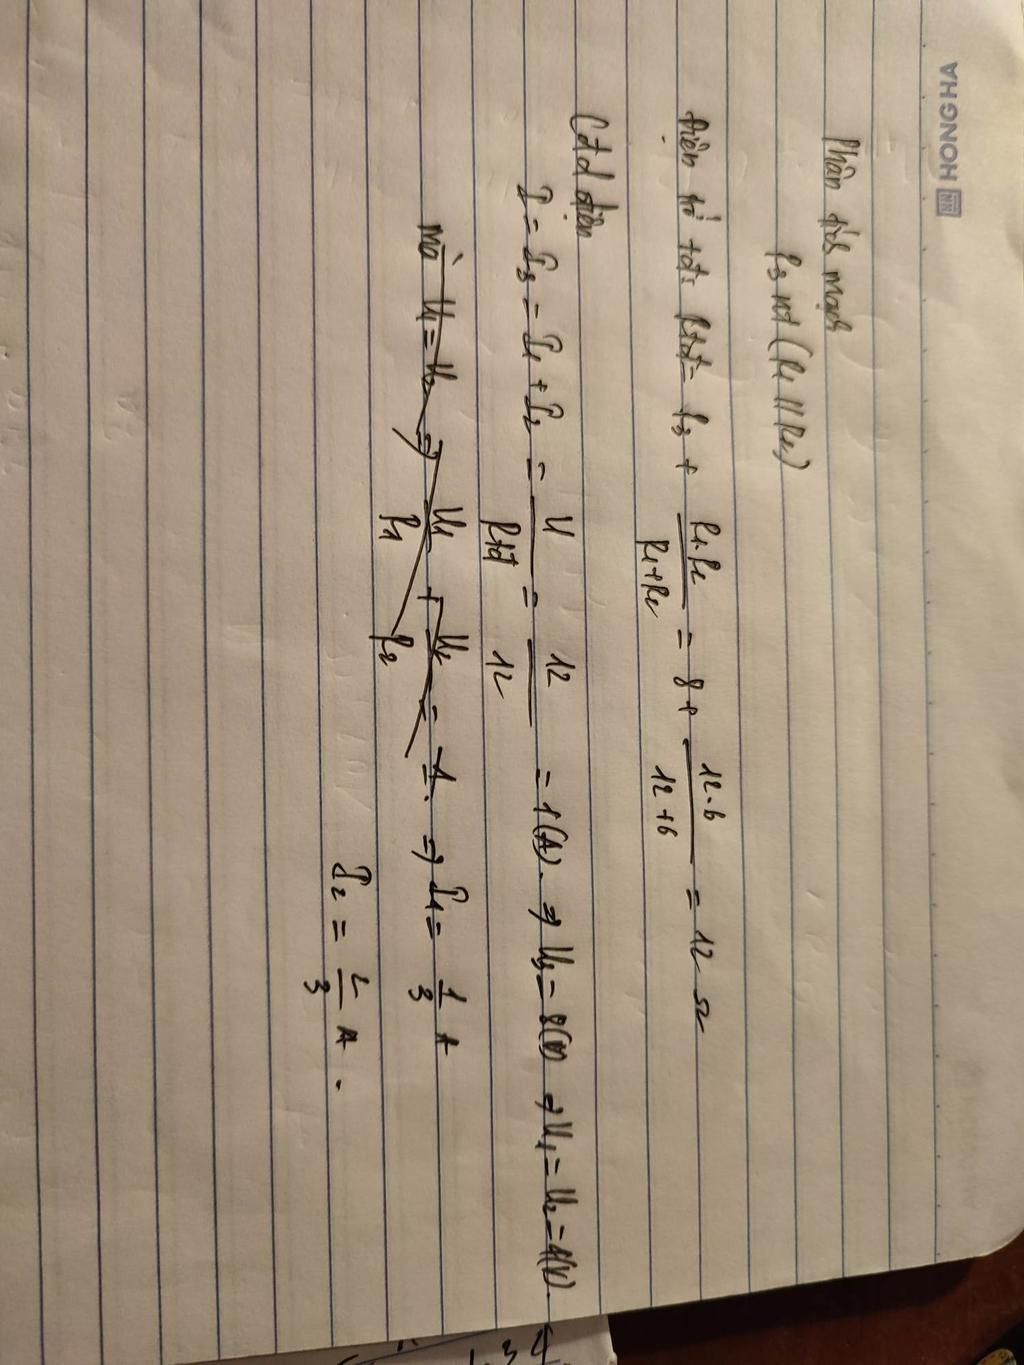 HONG HA
Phân tích mạch
R3 nt (R1 // R2)
Điện trở tđ: Rtđ = R3 + R1.R2 / R1+R2 = 8 + 12.6 / 12+6 = 12 Ω
Cđd điện
I = I3 = I1 + I2 = U / Rtđ = 12 / 12 = 1(A). ⇒ U3 = 8(V) ⇒ U1 = U2 = 4(V).
mà U1 = U2 ⇒ U1 / R1 + U2 / R2 = 1. ⇒ I1 = 1/3 A
I2 = 2/3 A.